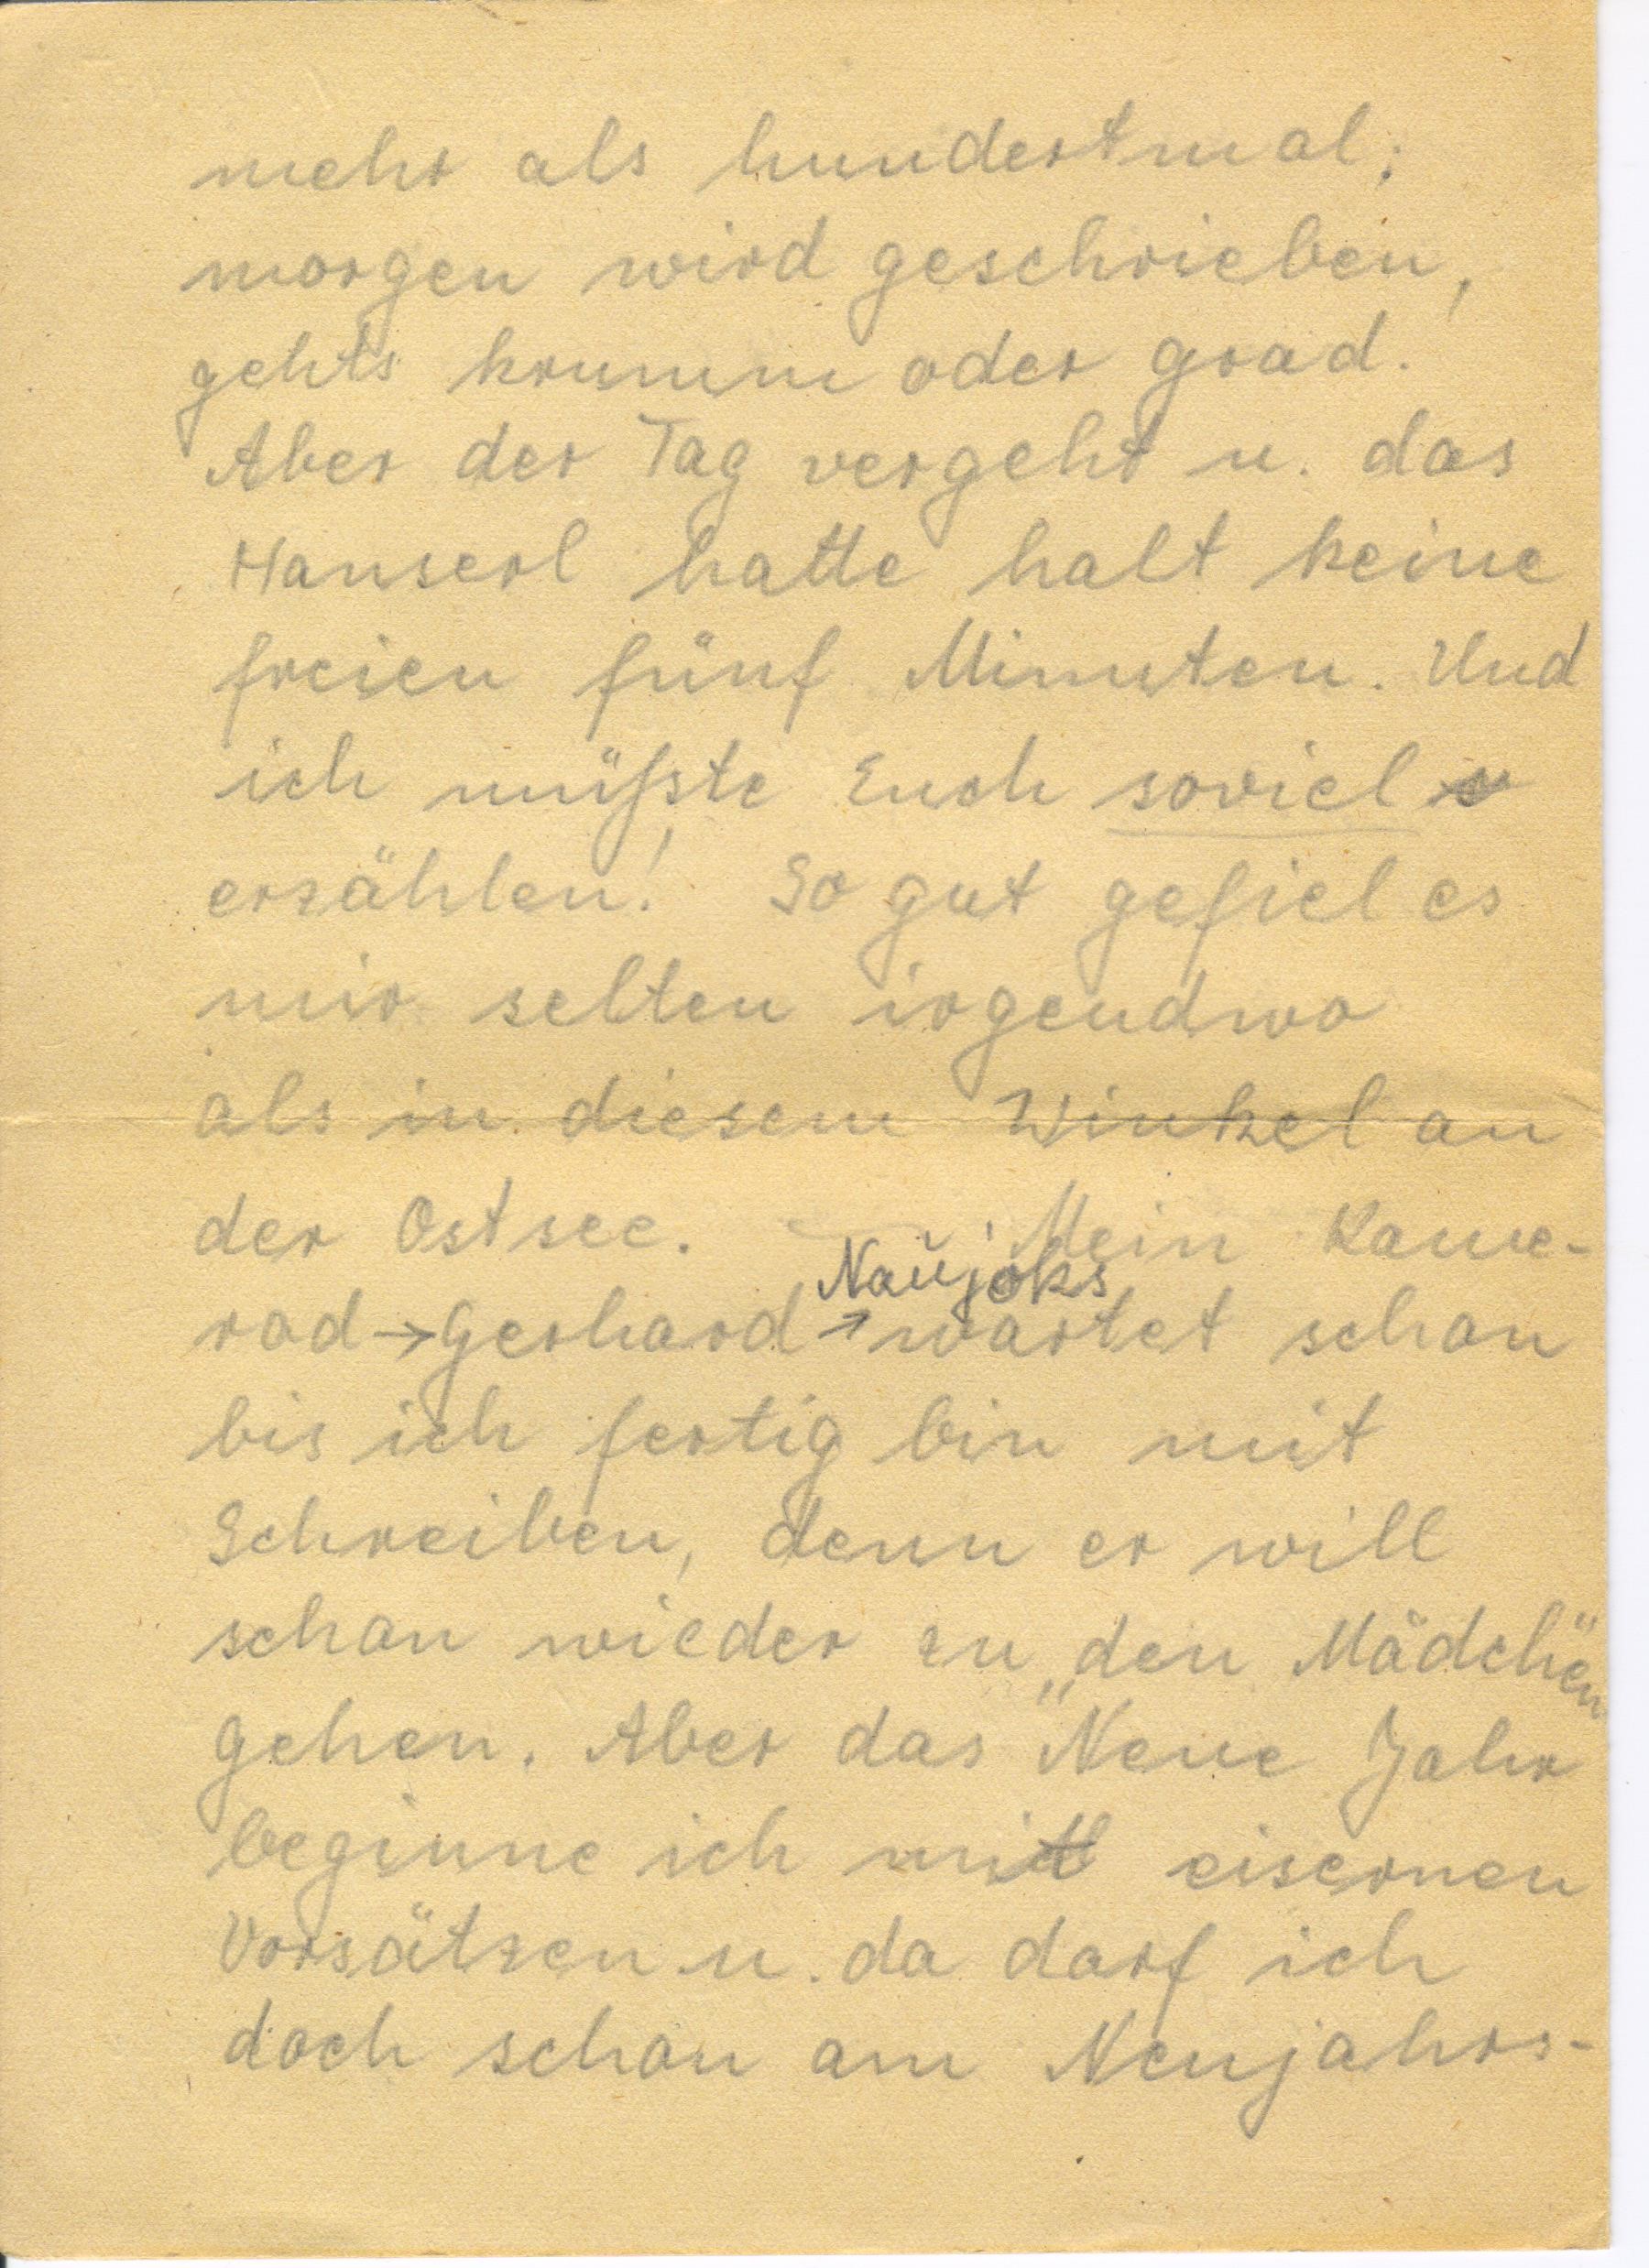 mehr als hundertmal;
morgen wird geschrieben,
gehts krumm oder grad.
Aber der Tag vergeht u. das
Hanserl hatte halt keine
freien fünf Minuten. Und
ich müßste Euch soviel
erzählen! So gut gefiel es
mir selten irgendwo
als in diesem Winkel an
der Ostsee. Mein Kame-
Naujoks
rad → Gerhard ↗ wartet schon
bis ich fertig bin mit
Schreiben, denn er will
schon wieder zu „den Mädchen"
gehen. Aber das "Neue Jahr
beginne ich mit eisernen
Vorsätzen u. da darf ich
doch schon am Neujahrs-